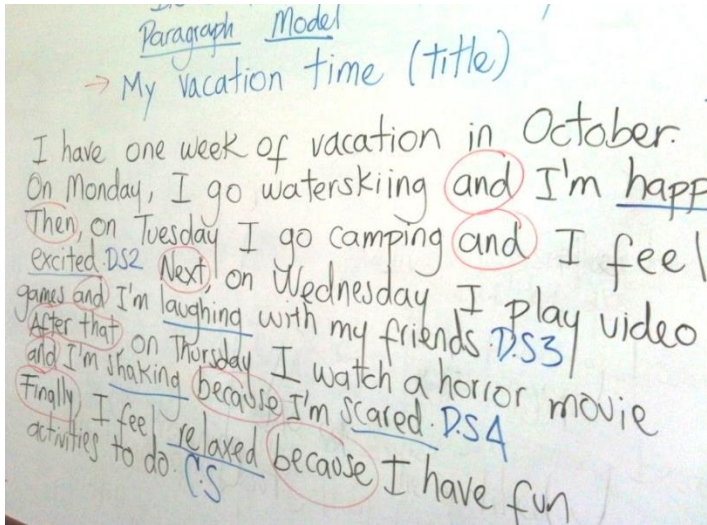 Paragraph Model
→ My vacation time (title)
I have one week of vacation in October.
On Monday, I go waterskiing and I'm happ
Then, on Tuesday I go camping and I feel
excited. DS2 Next, on Wednesday I play video
games and I'm laughing with my friends. D.S3
After that on Thursday I watch a horror movie
and I'm shaking because I'm scared. D.S4
Finally, I feel relaxed because I have fun
activities to do. C.S